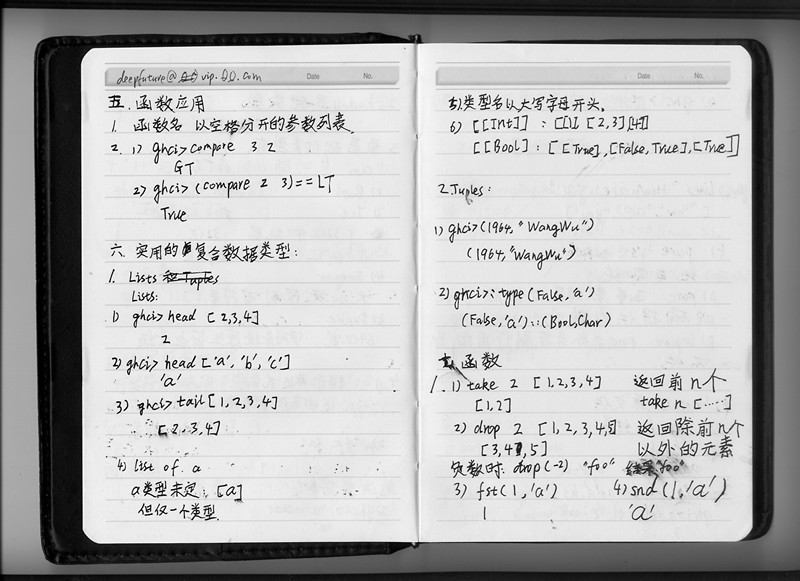 deepfuture@vip.QQ.com
Date No.
五.函数应用
1. 函数名 以空格分开的参数列表.
2. 1) ghci>compare 3 2
GT
2) ghci> (compare 2 3)==LT
True
六.实用的复合数据类型:
1. Lists 和 Tuples
Lists:
1) ghci>head [2,3,4]
2
2) ghci> head ['a', 'b', 'c']
'a'
3) ghci> tail [1,2,3,4]
[2,3,4]
4) list of a
a类型未定:[a]
但仅一个类型.
Date No.
5)类型名以大写字母开头.
6) [[Int]] : [[1],[2,3],[4]]
[[Bool] : [[True],[False,True],[True]]
2.Tuples:
1) ghci>(1964,"WangWu")
(1964,"WangWu")
2) ghci>:type (False,'a')
(False,'a')::(Bool,Char)
七.函数
1. 1) take 2 [1,2,3,4] 返回前n个
[1,2] take n [……]
2) drop 2 [1,2,3,4,5] 返回除前n个
[3,4,5] 以外的元素
负数时. drop(-2) "foo" 结果"foo"
3) fst(1,'a') 4) snd(1,'a')
1 'a'